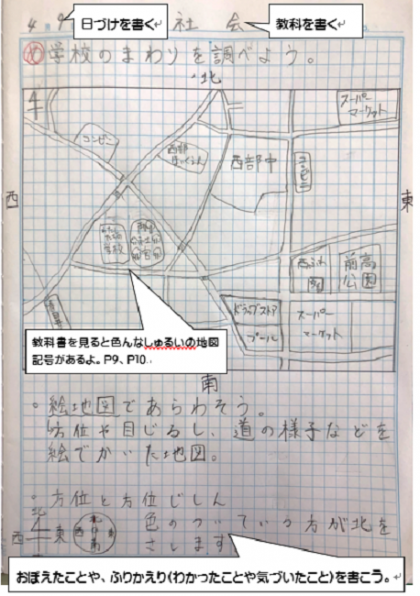 4月9 日づけを書く 社会 教科を書く
め 学校のまわりを調べよう。
北
スーパーマーケット
コンビニ
西部
西部中
コンビニ
西
東
前高公園
ドラッグストア
プール
スーパーマーケット
教科書を見ると色んなしゅるいの地図
記号があるよ。P9、P10.
南
・絵地図であらわそう。
方位や目じるし、道の様子などを
絵でかいた地図。
・方位と方位じしん
北
西 東
色のついている方が北を
さします
おぼえたことや、ふりかえり(わかったことや気づいたこと)を書こう。